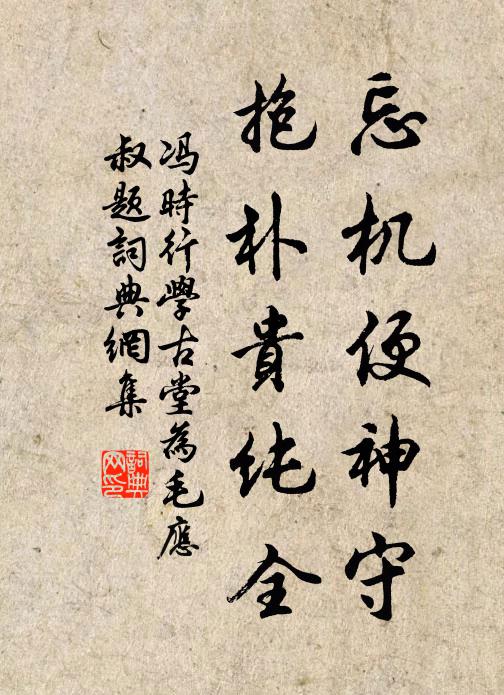 忘机便神守
抱朴貴纯全
冯時行學古堂為毛應
叔题詞典網集
詞典
网印